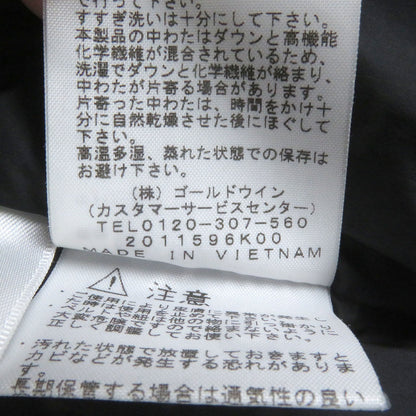 で行って下さい。
すすぎ洗いは十分にして下さい。
本製品の中わたはダウンと高機能
化学繊維が混合されているため、
洗濯でダウンと化学繊維が絡まり、
中わたが片寄る場合があります。
片寄った中わたは、時間をかけ十
分に自然乾燥させた後にほぐして
下さい。
高温多湿、蒸れた状態での保存は
お避け下さい。
(株) ゴールドウイン
(カスタマーサービスセンター)
TEL0120-307-560
2011596K00
MADE IN VIETNAM
注意
・汚れた状態で放置しておきますと
カビなどが発生する恐れがありま
長期保管する場合は通気性の良い